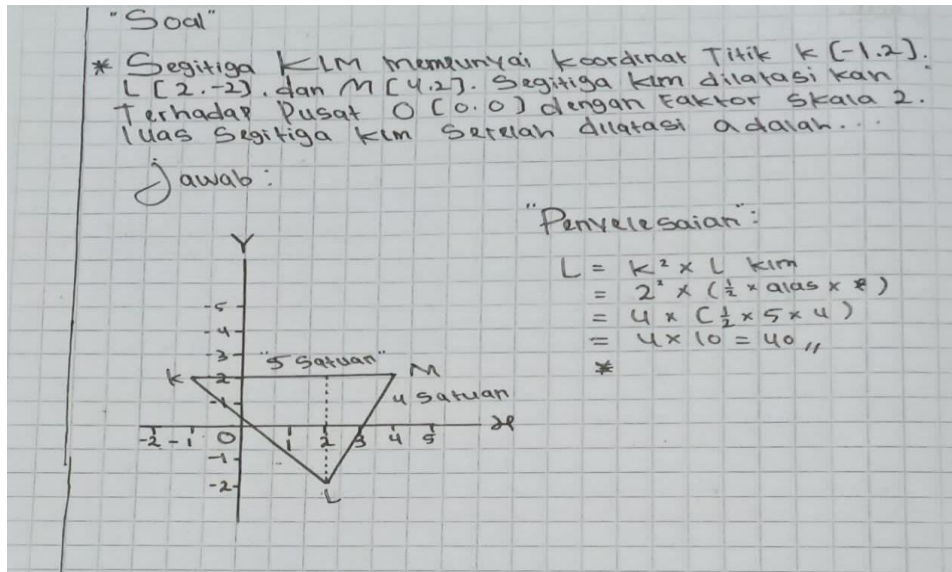 "Soal"
* Segitiga KLM mempunyai koordinat Titik K (-1.2).
L (2.-2). dan M (4.2). Segitiga klm dilatasi kan
Terhadap Pusat O (0.0) dengan Faktor Skala 2.
luas Segitiga klm Setelah dilatasi adalah...
Jawab:
"Penyelesaian":
L = K² x L klm
= 2² x (½ x alas x t)
= 4 x (½ x 5 x 4)
= 4 x 10 = 40 ,,
*
Y
-5
-4
-3 "5 Satuan"
K -2 M
-1 4 Satuan
-2 -1 0 1 2 3 4 5 x
-1
-2
L